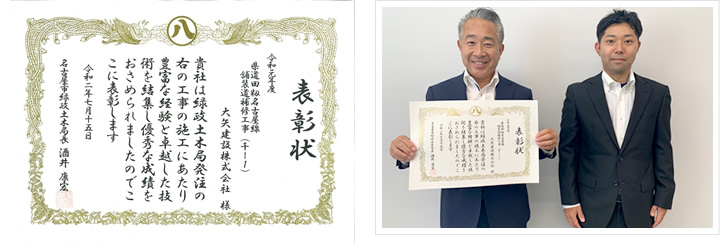 八
表彰状
令和元年度
県道田籾名古屋線
舗装道補修工事(千-1)
大矢建設株式会社 様
貴社は緑政土木局発注の
右の工事の施工にあたり
豊富な経験と卓越した技
術を結集し優秀な成績を
おさめられましたのでこ
こに表彰します
令和二年七月十五日
名古屋市緑政土木局長 酒井康宏
表彰状